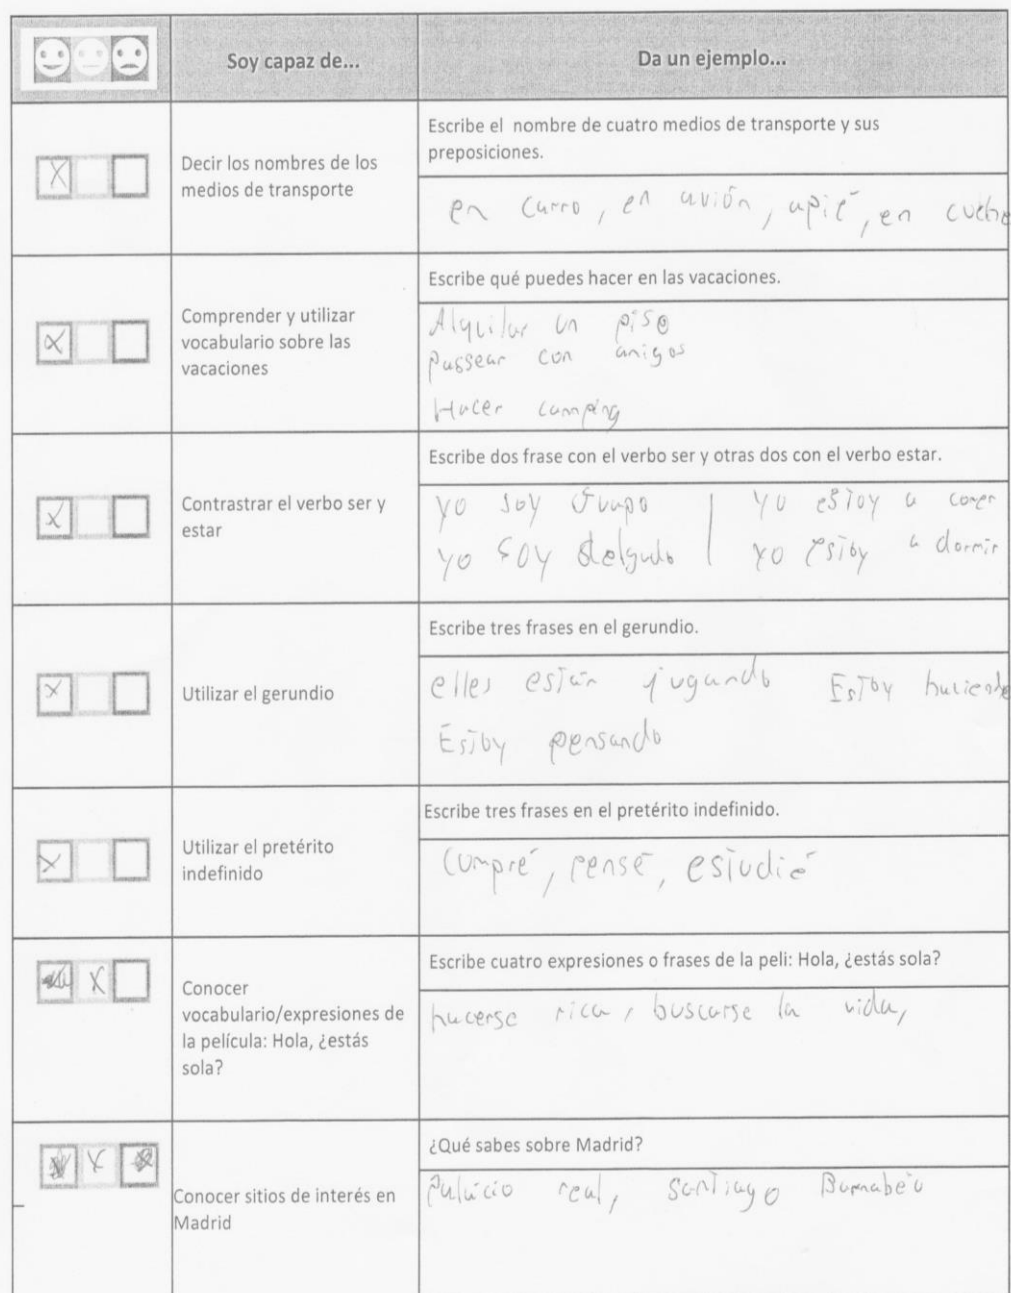 Soy capaz de...
Da un ejemplo...
Decir los nombres de los
medios de transporte
Escribe el nombre de cuatro medios de transporte y sus
preposiciones.
en carro, en avión, apié, en coche
Comprender y utilizar
vocabulario sobre las
vacaciones
Escribe qué puedes hacer en las vacaciones.
Alquilar un piso
passear con amigos
Hacer camping
Contrastrar el verbo ser y
estar
Escribe dos frase con el verbo ser y otras dos con el verbo estar.
yo soy Guapo | yo estoy a comer
yo soy delgado | yo estoy a dormir
Utilizar el gerundio
Escribe tres frases en el gerundio.
elles están jugando Estoy haciendo
Estoy pensando
Utilizar el pretérito
indefinido
Escribe tres frases en el pretérito indefinido.
compré, pensé, estudié
Conocer
vocabulario/expresiones de
la película: Hola, ¿estás
sola?
Escribe cuatro expresiones o frases de la peli: Hola, ¿estás sola?
hacerse rica, buscarse la vida,
Conocer sitios de interés en
Madrid
¿Qué sabes sobre Madrid?
Palácio real, Santiago Barnabéu